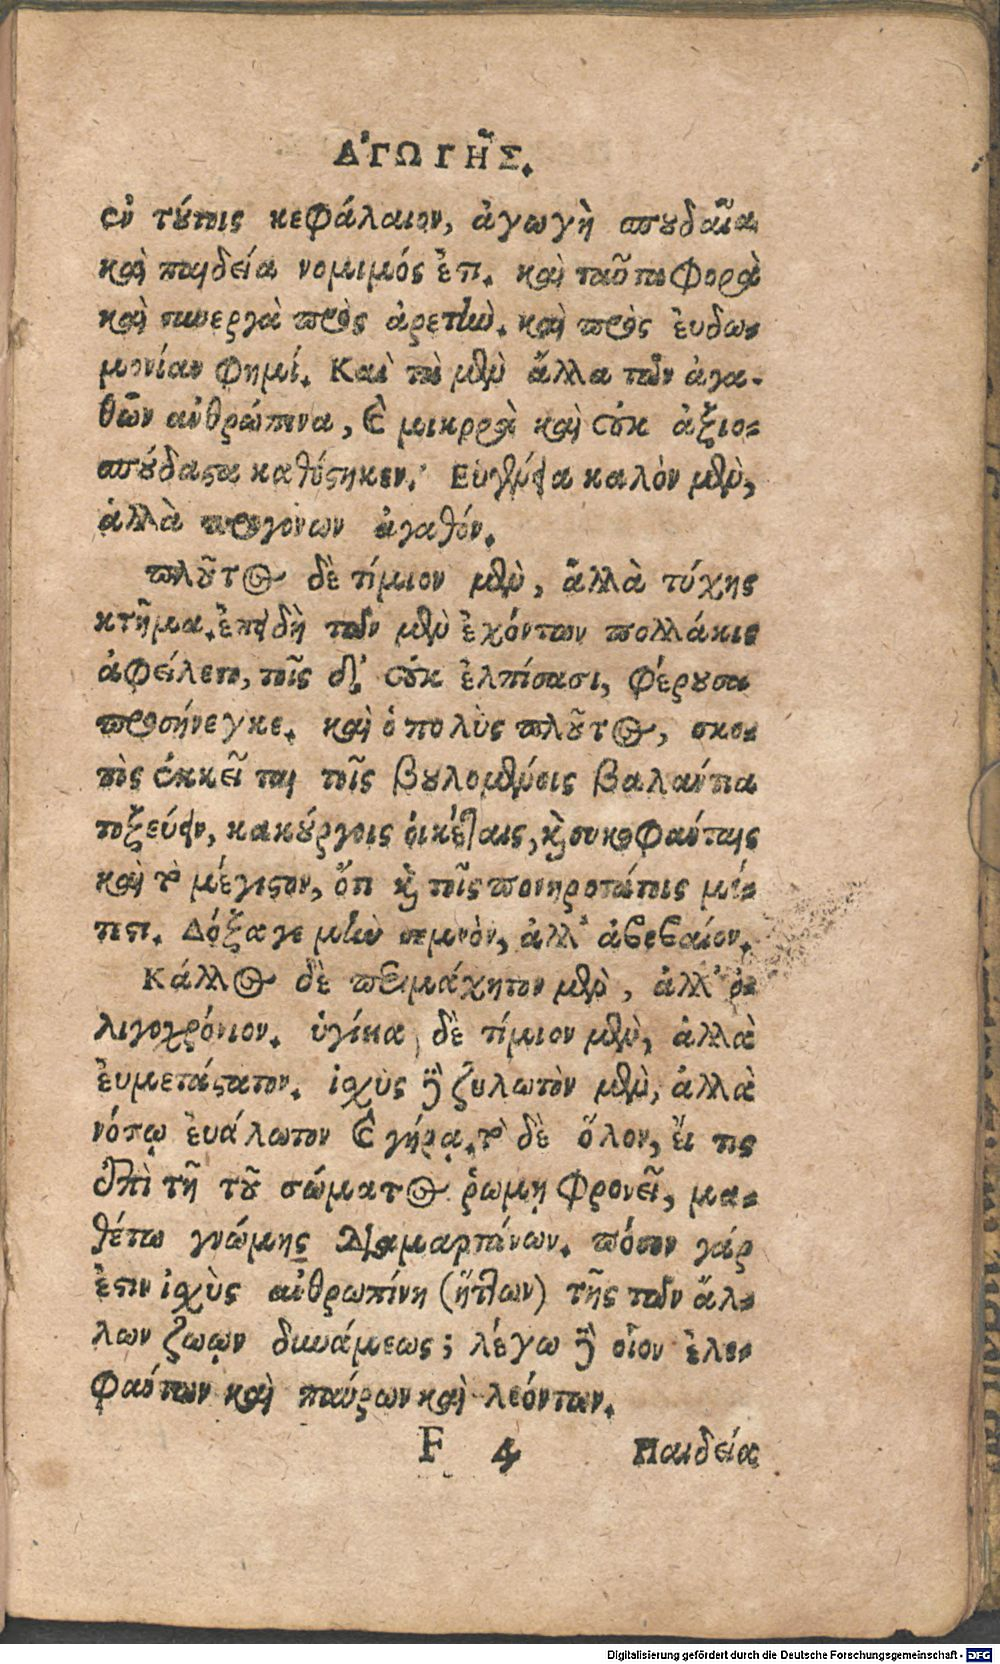 ἈΓΩΓΗ͂Σ.
ἐν τούτοις κεφάλαιον, ἀγωγὴ σπουδαῖα
καὶ παιδεία νομιμός ἐστι. καὶ ταῦτα φορὰ
καὶ συνεργὰ πρὸς ἀρετὴν. καὶ πρὸς ἐυδαι-
μονίαν φημί. Καὶ τὰ μὲν ἄλλα τῶν ἀγα-
θῶν ἀνθρώπινα, καὶ μικρρὰ καὶ οὐκ ἀξιο-
σπούδαστα καθέστηκεν. Εὐγένεια καλὸν μὲν,
ἀλλὰ προγόνων ἀγαθόν.
πλοῦτος δὲ τίμιον μὲν, ἀλλὰ τύχης
κτῆμα. ἐπειδὴ τῶν μὲν ἐχόντων πολλάκις
ἀφείλετο, τοῖς δ' οὐκ ἐλπίσασι, φέρουσα
προσήνεγκε. καὶ ὁ πολὺς πλοῦτος, σκο-
πὸς ἐκκεῖται τοῖς βουλομένοις βαλάντια
τοξεύειν, κακούργοις ὀικέταις, καὶ συκοφάνταις
καὶ τὸ μέγιστον, ὅτι καὶ τοῖς πονηροτάτοις μέ-
τεστι. Δόξα γε μὴν σεμνὸν, ἀλλ' ἀβεβαίον.
Κάλλος δὲ περιμάχητον μὲν, ἀλλ' ὀ-
λιγοχρόνιον. ὑγίεια, δὲ τίμιον μὲν, ἀλλὰ
ἐυμετάστατον. ἰσχὺς δὲ ζηλωτὸν μὲν, ἀλλὰ
νόσῳ ἐυάλωτον καὶ γήρᾳ. τὸ δὲ ὅλον, ἔι τις
ἐπὶ τῇ τοῦ σώματος ῥώμῃ φρονεῖ, μα-
θέτω γνώμης διαμαρτάνων. πόσον γάρ
ἐστιν ἰσχὺς ἀνθρωπίνη (ἥττων) τῆς τῶν ἄλ-
λων ζώων δυνάμεως; λέγω δὲ οἷον ἐλε-
φάντων καὶ ταύρων καὶ λεόντων.
F 4 Παιδεία
Digitalisierung gefördert durch die Deutsche Forschungsgemeinschaft - DFG